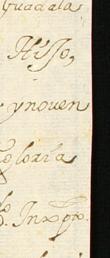 Guadala
Hijo,
ynoven
oloría
S. Inxpo.